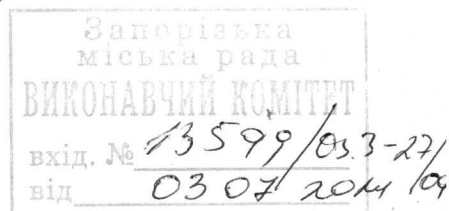 Запорізька
міська рада
ВИКОНАВЧИЙ КОМІТЕТ
вхід. № 13599/03.3-27/04
від 03 07 2014